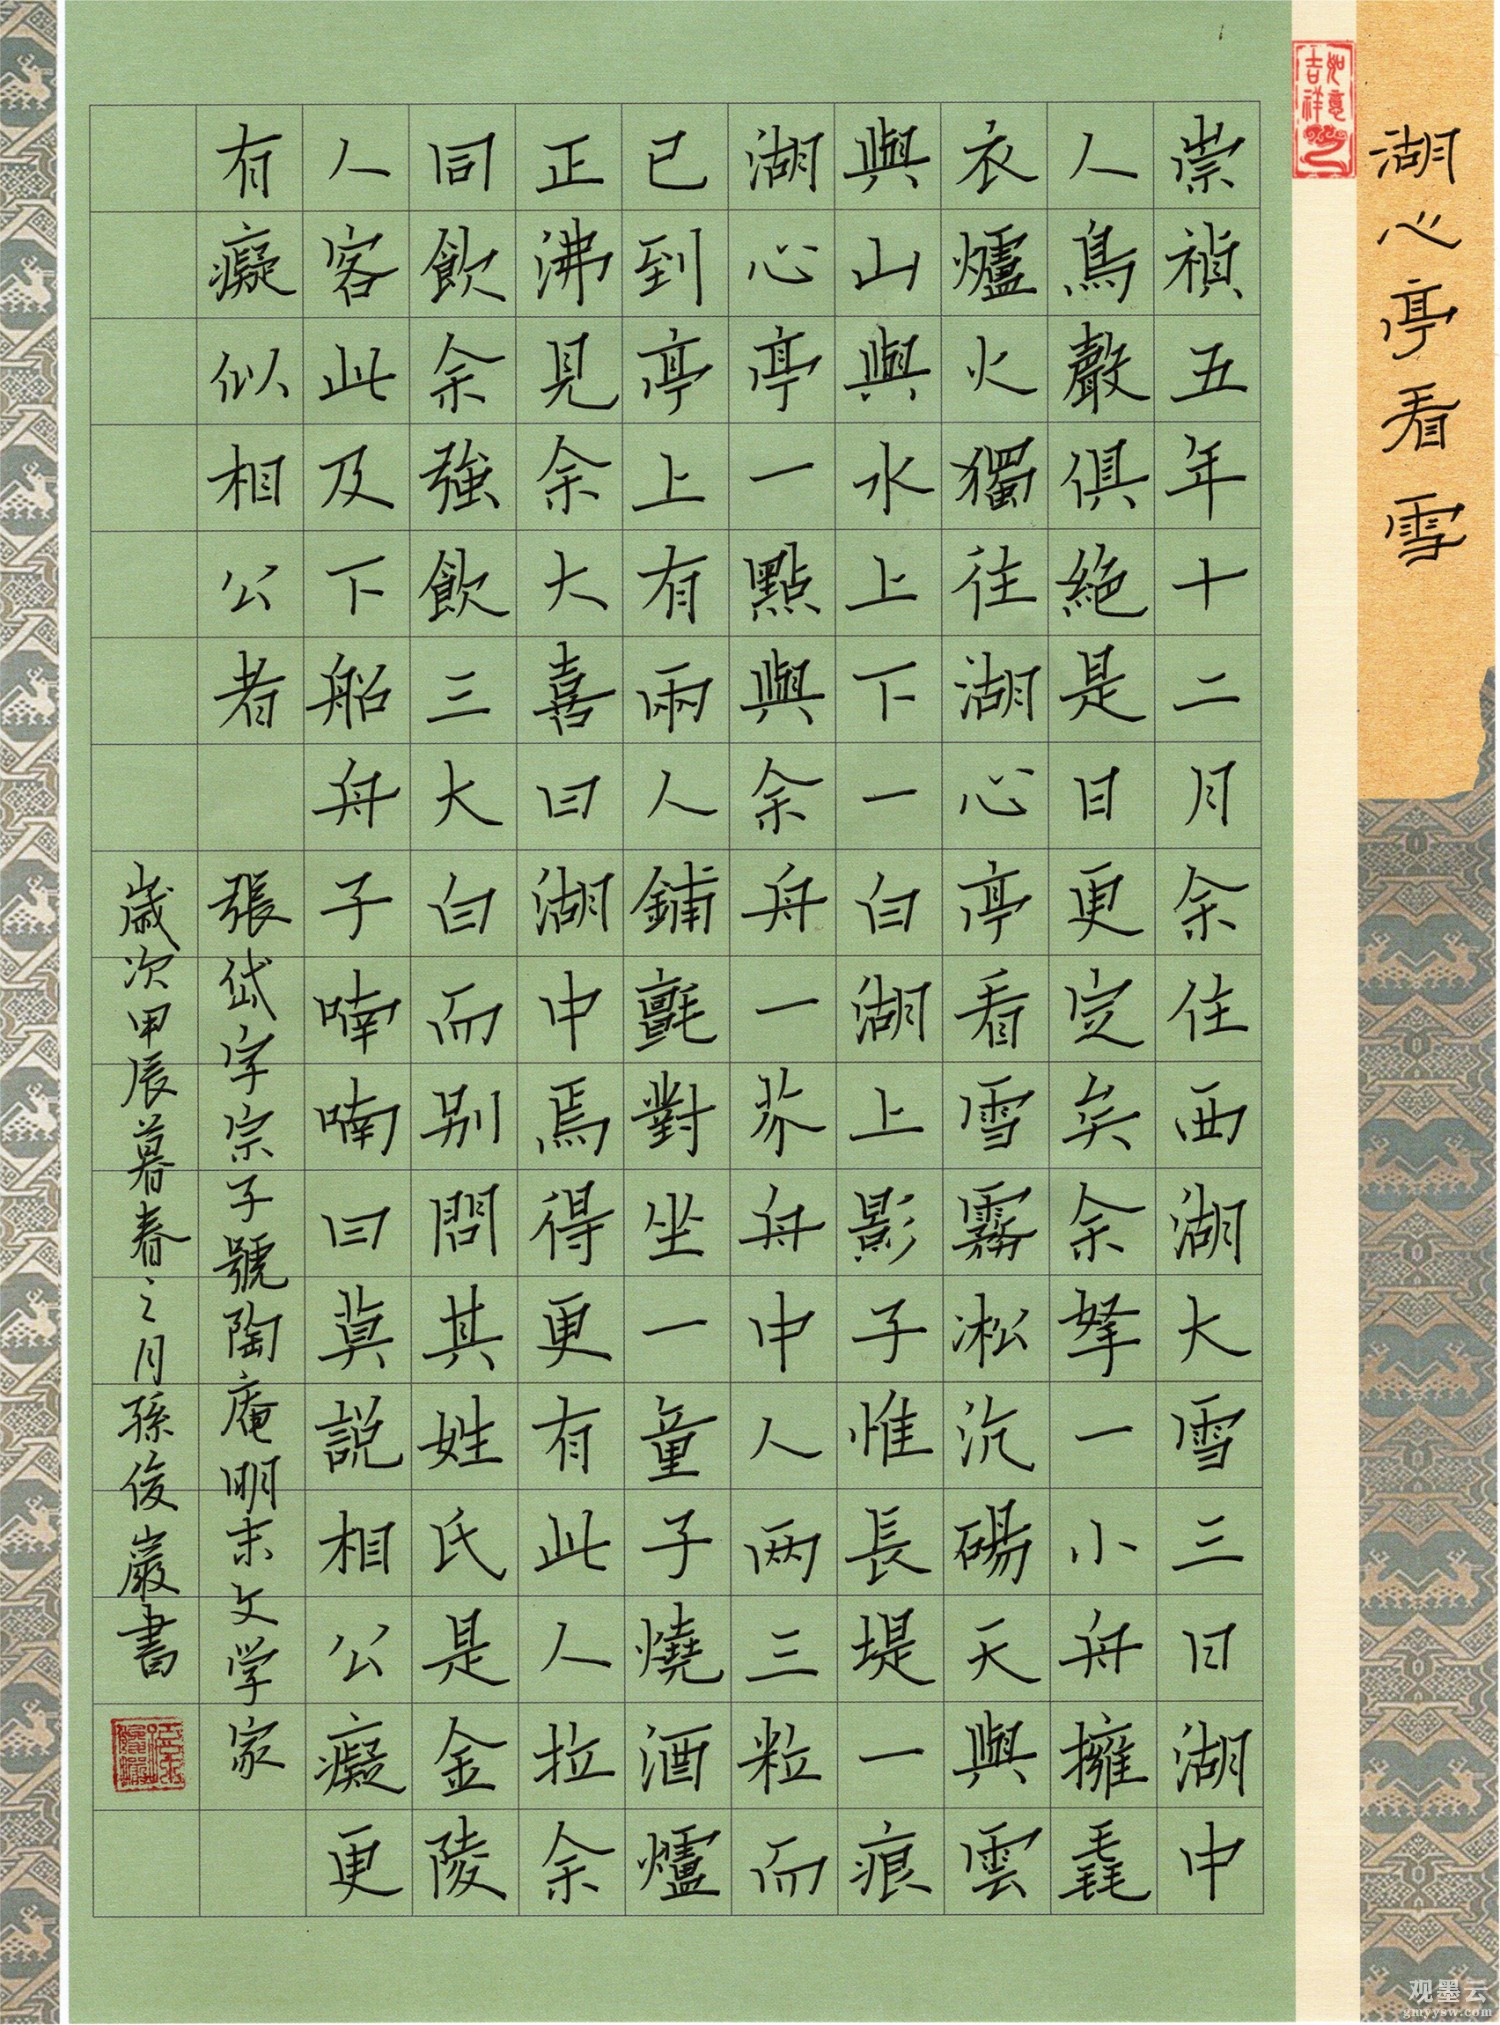 湖心亭看雪
如意吉祥
崇禎五年十二月余住西湖大雪三日湖中
人鳥聲俱絶是日更定矣余拏一小舟擁毳
衣爐火獨往湖心亭看雪霧凇沆碭天與雲
與山與水上下一白湖上影子惟長堤一痕
湖心亭一點與余舟一芥舟中人两三粒而
已到亭上有兩人鋪氈對坐一童子燒酒爐
正沸見余大喜曰湖中焉得更有此人拉余
同飲余強飲三大白而別問其姓氏是金陵
人客此及下船舟子喃喃曰莫説相公癡更
有癡似相公者
張岱字宗子號陶庵明末文学家
歲次甲辰暮春之月孫俊巖書
观墨云
gmyysw.com